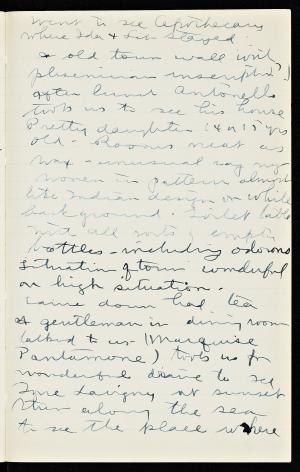 Went to see Apothecary
where Ida & Lib stayed.
& old town wall with
phoenician inscription
After lunch Antonello
took us to see his house
Pretty daughter 14 or 15 yrs
old - Rooms neat as
wax - unusual rag rug
woven in pattern almost
like Indian design on white
background. Toilet table
with all sorts of empty
bottles - including odorono
Situation of town wonderful
on high situation.
Came down had tea
& gentleman in dining room
talked to us (Marquise
Pantamone) took us for
wonderful drive to see
at sunset
then along the sea
to see the place where